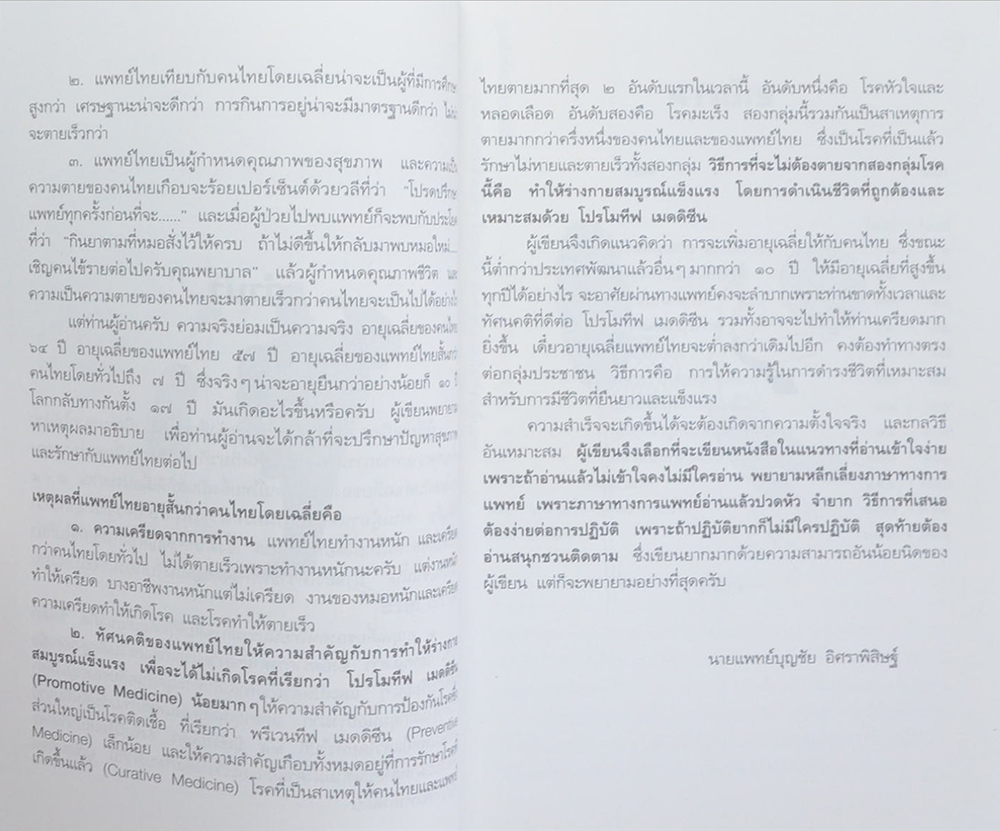 ๒. แพทย์ไทยเทียบกับคนไทยโดยเฉลี่ยน่าจะเป็นผู้ที่มีการศึก
สูงกว่า เศรษฐานะน่าจะดีกว่า การกินการอยู่น่าจะมีมาตรฐานดีกว่า ไม่
จะตายเร็วกว่า
๓. แพทย์ไทยเป็นผู้กำหนดคุณภาพของสุขภาพ และความเป็
ความตายของคนไทยเกือบจะร้อยเปอร์เซ็นต์ด้วยวลีที่ว่า "โปรดปรึก
แพทย์ทุกครั้งก่อนที่จะ......" และเมื่อผู้ป่วยไปพบแพทย์ก็จะพบกับประโย
ที่ว่า "กินยาตามที่หมอสั่งไว้ให้ครบ ถ้าไม่ดีขึ้นให้กลับมาพบหมอใหม่...
เชิญคนไข้รายต่อไปครับคุณพยาบาล" แล้วผู้กำหนดคุณภาพชีวิต และ
ความเป็นความตายของคนไทยจะมาตายเร็วกว่าคนไทยจะเป็นไปได้อย่าง
แต่ท่านผู้อ่านครับ ความจริงย่อมเป็นความจริง อายุเฉลี่ยของคนไทย
๖๔ ปี อายุเฉลี่ยของแพทย์ไทย ๕๗ ปี อายุเฉลี่ยของแพทย์ไทยสั้นกว่า
คนไทยโดยทั่วไปถึง ๗ ปี ซึ่งจริงๆน่าจะอายุยืนกว่าอย่างน้อยก็ ๑๐ ปี
โลกกลับทางกันตั้ง ๑๗ ปี มันเกิดอะไรขึ้นหรือครับ ผู้เขียนพยายาม
หาเหตุผลมาอธิบาย เพื่อท่านผู้อ่านจะได้กล้าที่จะปรึกษาปัญหาสุขภาพ
และรักษากับแพทย์ไทยต่อไป
เหตุผลที่แพทย์ไทยอายุสั้นกว่าคนไทยโดยเฉลี่ยคือ
๑. ความเครียดจากการทำงาน แพทย์ไทยทำงานหนัก และเครียด
กว่าคนไทยโดยทั่วไป ไม่ได้ตายเร็วเพราะทำงานหนักนะครับ แต่งานหนัก
ทำให้เครียด บางอาชีพงานหนักแต่ไม่เครียด งานของหมอหนักและเครียด
ความเครียดทำให้เกิดโรค และโรคทำให้ตายเร็ว
๒. ทัศนคติของแพทย์ไทยให้ความสำคัญกับการทำให้ร่างกาย
สมบูรณ์แข็งแรง เพื่อจะได้ไม่เกิดโรคที่เรียกว่า โปรโมทีฟ เมดดิซีน
(Promotive Medicine) น้อยมากๆให้ความสำคัญกับการป้องกันโรคซึ่ง
ส่วนใหญ่เป็นโรคติดเชื้อ ที่เรียกว่า พรีเวนทีฟ เมดดิซีน (Preventive
Medicine) เล็กน้อย และให้ความสำคัญเกือบทั้งหมดอยู่ที่การรักษาโรคที่
เกิดขึ้นแล้ว (Curative Medicine) โรคที่เป็นสาเหตุให้คนไทยและแพทย์
ไทยตายมากที่สุด ๒ อันดับแรกในเวลานี้ อันดับหนึ่งคือ โรคหัวใจและ
หลอดเลือด อันดับสองคือ โรคมะเร็ง สองกลุ่มนี้รวมกันเป็นสาเหตุการ
ตายมากกว่าครึ่งหนึ่งของคนไทยและของแพทย์ไทย ซึ่งเป็นโรคที่เป็นแล้ว
รักษาไม่หายและตายเร็วทั้งสองกลุ่ม วิธีการที่จะไม่ต้องตายจากสองกลุ่มโรค
นี้คือ ทำให้ร่างกายสมบูรณ์แข็งแรง โดยการดำเนินชีวิตที่ถูกต้องและ
เหมาะสมด้วย โปรโมทีฟ เมดดิซีน
ผู้เขียนจึงเกิดแนวคิดว่า การจะเพิ่มอายุเฉลี่ยให้กับคนไทย ซึ่งขณะ
นี้ต่ำกว่าประเทศพัฒนาแล้วอื่นๆมากกว่า ๑๐ ปี ให้มีอายุเฉลี่ยที่สูงขึ้น
ทุกปีได้อย่างไร จะอาศัยผ่านทางแพทย์คงจะลำบากเพราะท่านขาดทั้งเวลาและ
ทัศนคติที่ดีต่อ โปรโมทีฟ เมดดิซีน รวมทั้งอาจจะไปทำให้ท่านเครียดมาก
ยิ่งขึ้น เดี๋ยวอายุเฉลี่ยแพทย์ไทยจะต่ำลงกว่าเดิมไปอีก คงต้องทำทางตรง
ต่อกลุ่มประชาชน วิธีการคือ การให้ความรู้ในการดำรงชีวิตที่เหมาะสม
สำหรับการมีชีวิตที่ยืนยาวและแข็งแรง
ความสำเร็จจะเกิดขึ้นได้จะต้องเกิดจากความตั้งใจจริง และกลวิธี
อันเหมาะสม ผู้เขียนจึงเลือกที่จะเขียนหนังสือในแนวทางที่อ่านเข้าใจง่าย
เพราะถ้าอ่านแล้วไม่เข้าใจคงไม่มีใครอ่าน พยายามหลีกเลี่ยงภาษาทางการ
แพทย์ เพราะภาษาทางการแพทย์อ่านแล้วปวดหัว จำยาก วิธีการที่เสนอ
ต้องง่ายต่อการปฏิบัติ เพราะถ้าปฏิบัติยากก็ไม่มีใครปฏิบัติ สุดท้ายต้อง
อ่านสนุกชวนติดตาม ซึ่งเขียนยากมากด้วยความสามารถอันน้อยนิดของ
ผู้เขียน แต่ก็จะพยายามอย่างที่สุดครับ
นายแพทย์บุญชัย อิศราพิสิษฐ์